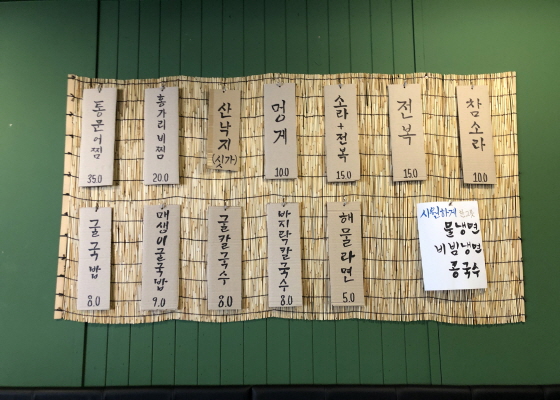 통문어찜
35.0
홍가리비찜
20.0
산낙지
(시가)
멍게
10.0
소라+전복
15.0
전복
15.0
참소라
10.0
굴국밥
8.0
매생이굴국밥
9.0
굴칼국수
8.0
바지락칼국수
8.0
해물라면
5.0
시원하게
물냉면
비빔냉면
콩국수